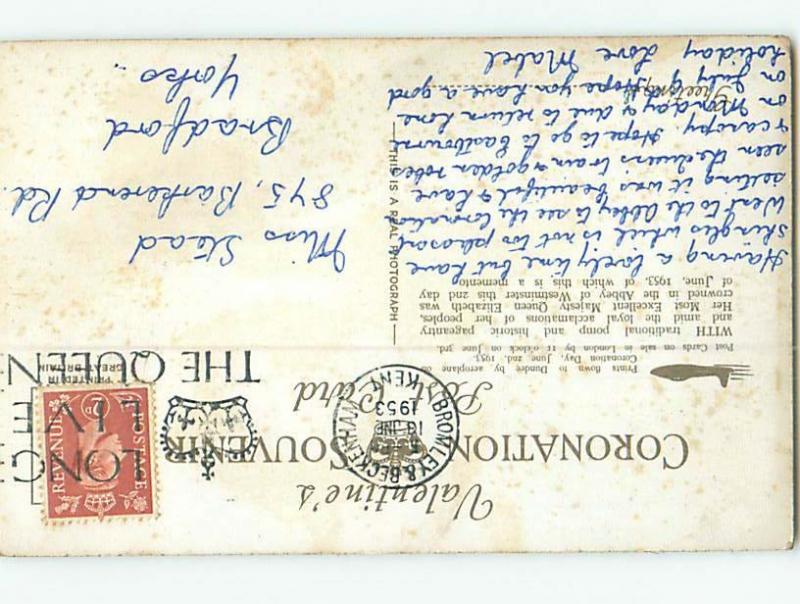 Valentine's
CORONATION SOUVENIR
Post Card
BROMLEY & BECKENHAM
16 JNE
1953
KENT
LONG
LIVE
THE QUEEN
POSTAGE
REVENUE
PRINTED IN
GREAT BRITAIN
Prints flown to Dundee by aeroplane on
Coronation Day, June 2nd, 1953.
Post Cards on sale in London by 11 o'clock on June 3rd.
WITH traditional pomp and historic pageantry
and amid the loyal acclamations of her peoples,
Her Most Excellent Majesty Queen Elizabeth was
crowned in the Abbey of Westminster this 2nd day
of June, 1953, of which this is a memento
THIS IS A REAL PHOTOGRAPH
Having a lovely time but have
shingles which is not too pleasant
Went to the Abbey to see the Coronation
setting it was beautiful & have
seen the queens train & golden robes
& canopy. Hope to go to Eastbourne
on Monday & due to return home
on July 9 Hope you have a good
holiday Love Mabel
Greetings
Miss Stead
845, Barkerend Rd.
Bradford
Yorks..